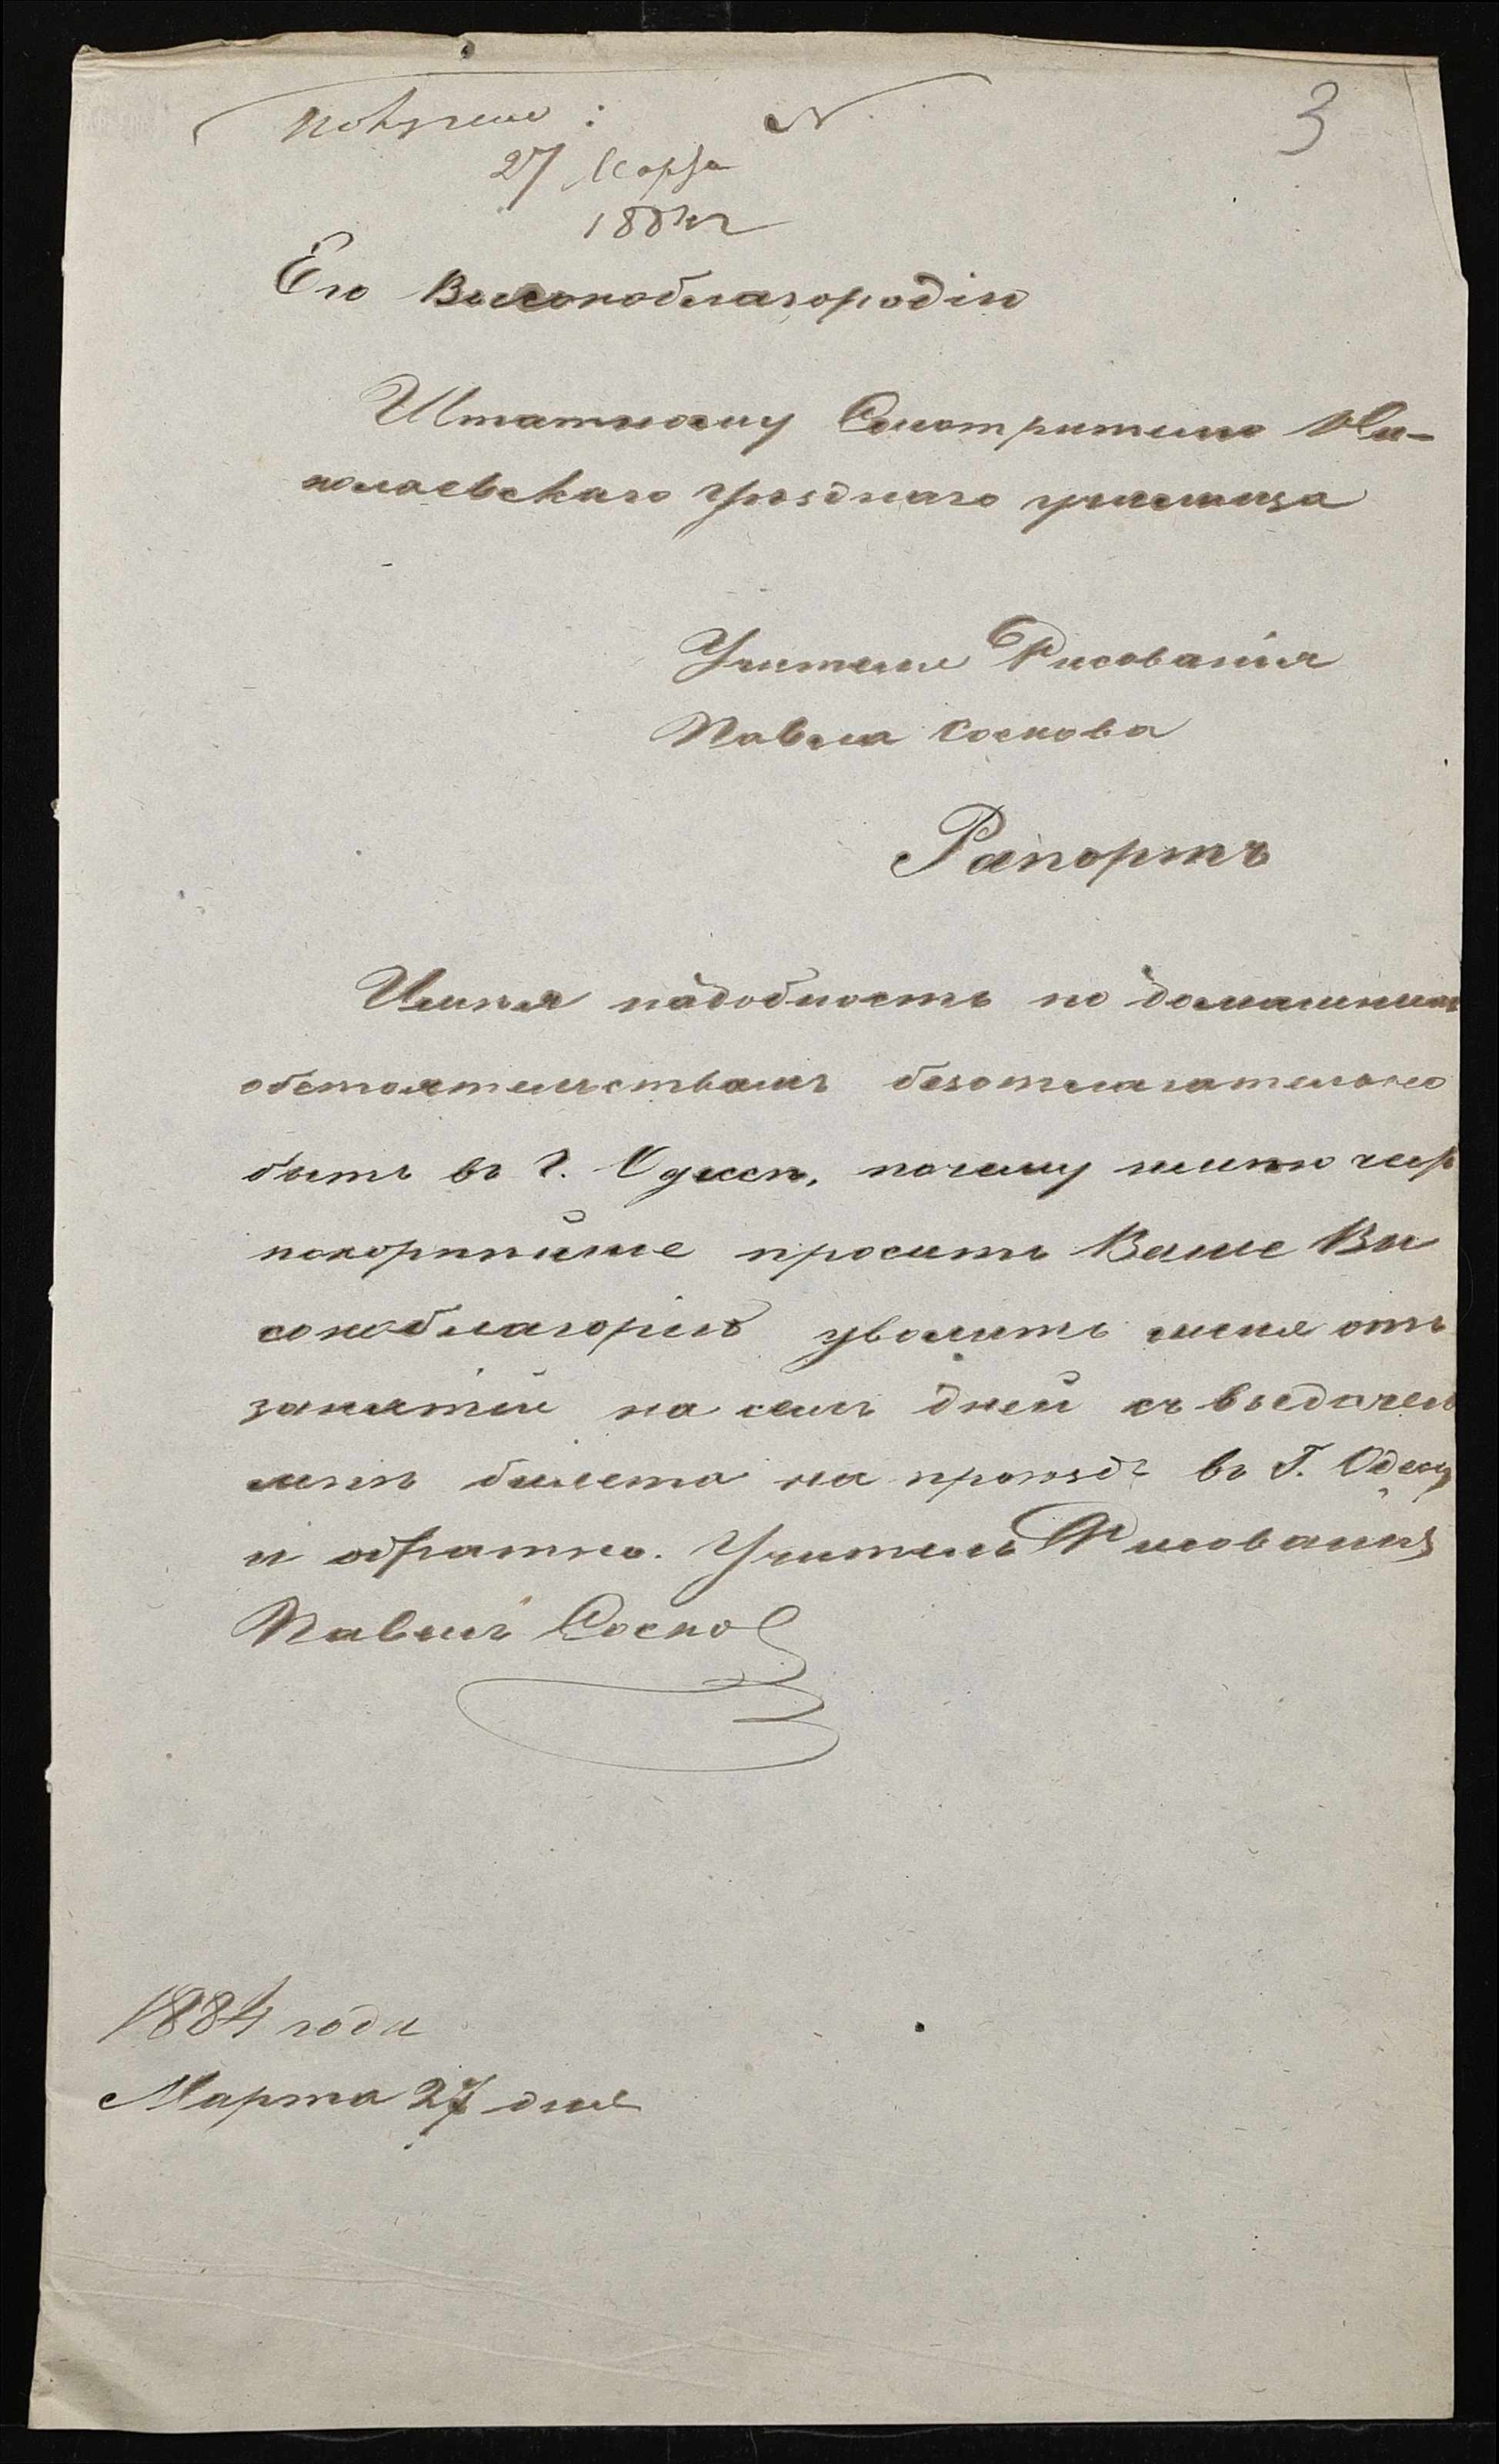 Получено: N. 3
27 Марта
1884 г
Его Высокоблагородію
Штатному Смотрителю Ни-
колаевскаго Уѣзднаго училища
Учителя Рисованія
Павла Соскова
Рапортъ
Имѣя надобность по домашнимъ
обстоятельствамъ безотлагательно
быть въ г. Одессѣ, почему имѣю
покорнѣйше просить Ваше Вы
сокоблагоріе уволить меня отъ
занятій на семь дней съ выдачею
мнѣ билета на проѣздъ въ Г. Одессу
и обратно. Учитель Рисованія
Павелъ Сосков
1884 года
Марта 27 дня